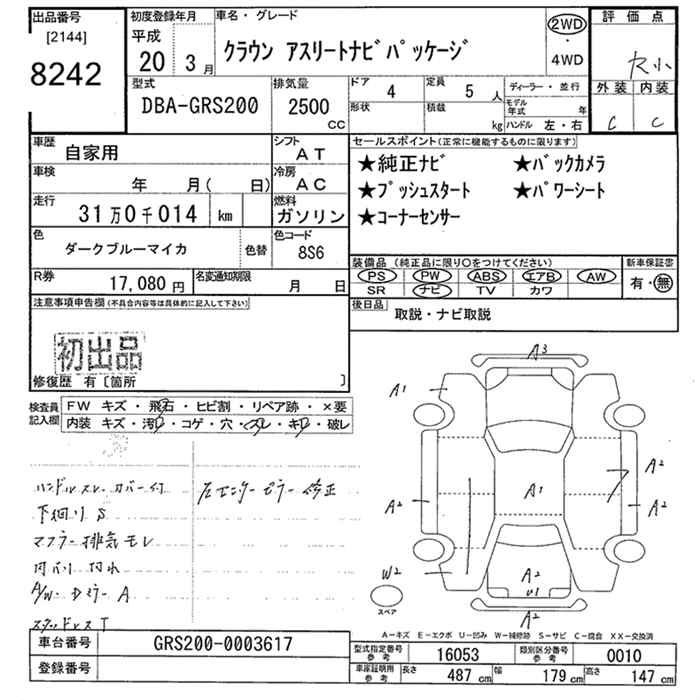 出品番号
[2144]
8242
初度登録年月
平成
20 3月
車名・グレード
クラウン アスリートナビパッケージ
2WD
・
4WD
評価点
外装 内装
C C
型式
DBA-GRS200
排気量
2500
CC
ドア
4
定員
5 人
形状
積載
kg
ディーラー・並行
モデル年式 年
ハンドル 左・右
車歴
自家用
シフト
AT
車検
年 月( 日)
冷房
AC
走行
31万0千014 km
燃料
ガソリン
色
ダークブルーマイカ
色替
色コード
8S6
R券
17,080円
名変通知期限
月 日
セールスポイント(正常に機能するものに限ります)
★純正ナビ ★バックカメラ
★プッシュスタート ★パワーシート
★コーナーセンサー
装備品(純正品に限り○をつけてください)
PS PW ABS エアB AW
SR ナビ TV カワ
新車保証書
有・無
後日品
取説・ナビ取説
注意事項申告欄(不具合内容等は具体的に記入して下さい)
初出品
修復歴 有〔箇所 〕
検査員
記入欄
FW キズ・飛石・ヒビ割・リペア跡・×要
内装 キズ・汚れ・コゲ・穴・スレ・キレ・破レ
ハンドルスレ カバー付
左センターピラー修正
下回りS
マフラー排気モレ
内バリ 汚れ
A/W- Dミラー A
スタッドレスT
A3
A1
A2
A2
A1
A2
A2
W2
A2
U1
A2
スペア
A-キズ E-エクボ U-凹み W-補修跡 S-サビ C-腐食 XX-交換済
車台番号
GRS200-0003617
登録番号
型式指定番号
参考
16053
類別区分番号
参考
0010
車家証明用
参考
長さ 487 cm 幅 179 cm 高さ 147 cm